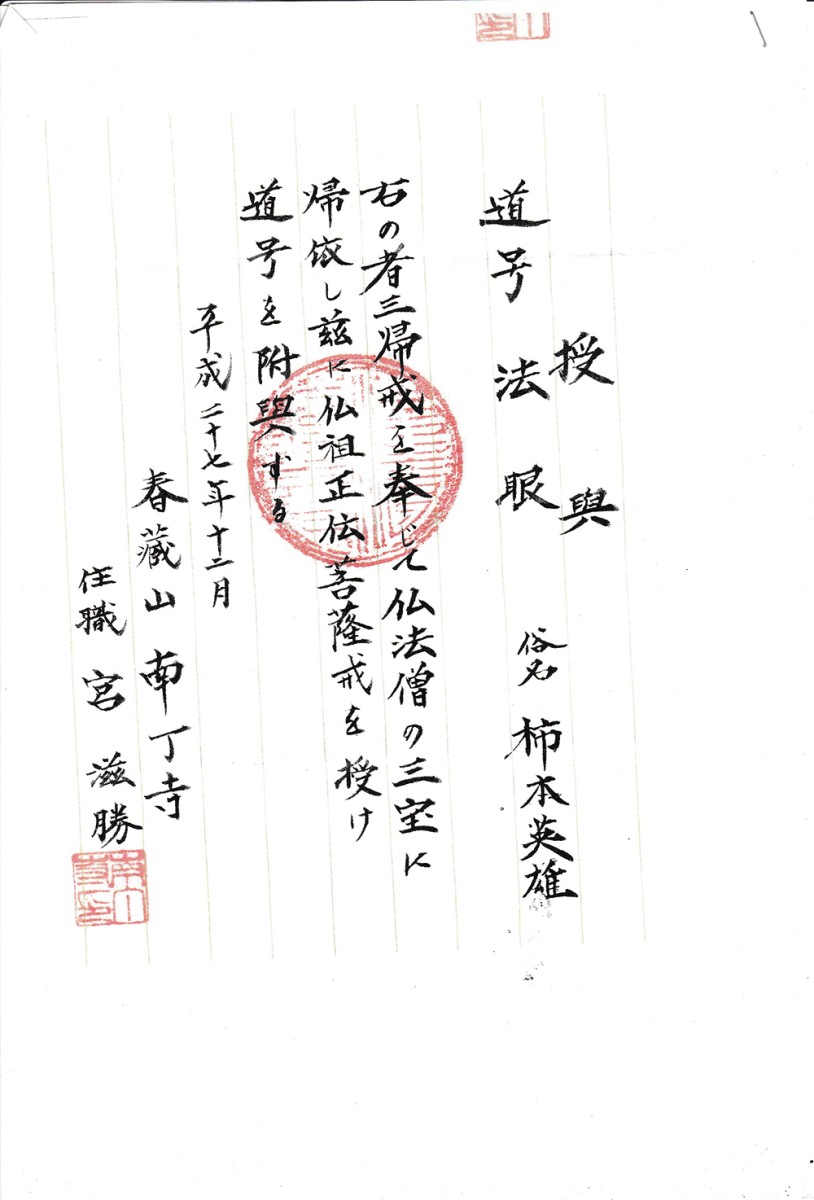 授與
道号 法眼 俗名 柿本英雄
右の者三帰戒を奉じて仏法僧の三宝に
帰依し茲に仏祖正伝菩薩戒を授け
道号を附與する
平成二十七年十二月
春蔵山 南丁寺
住職 宮 滋勝